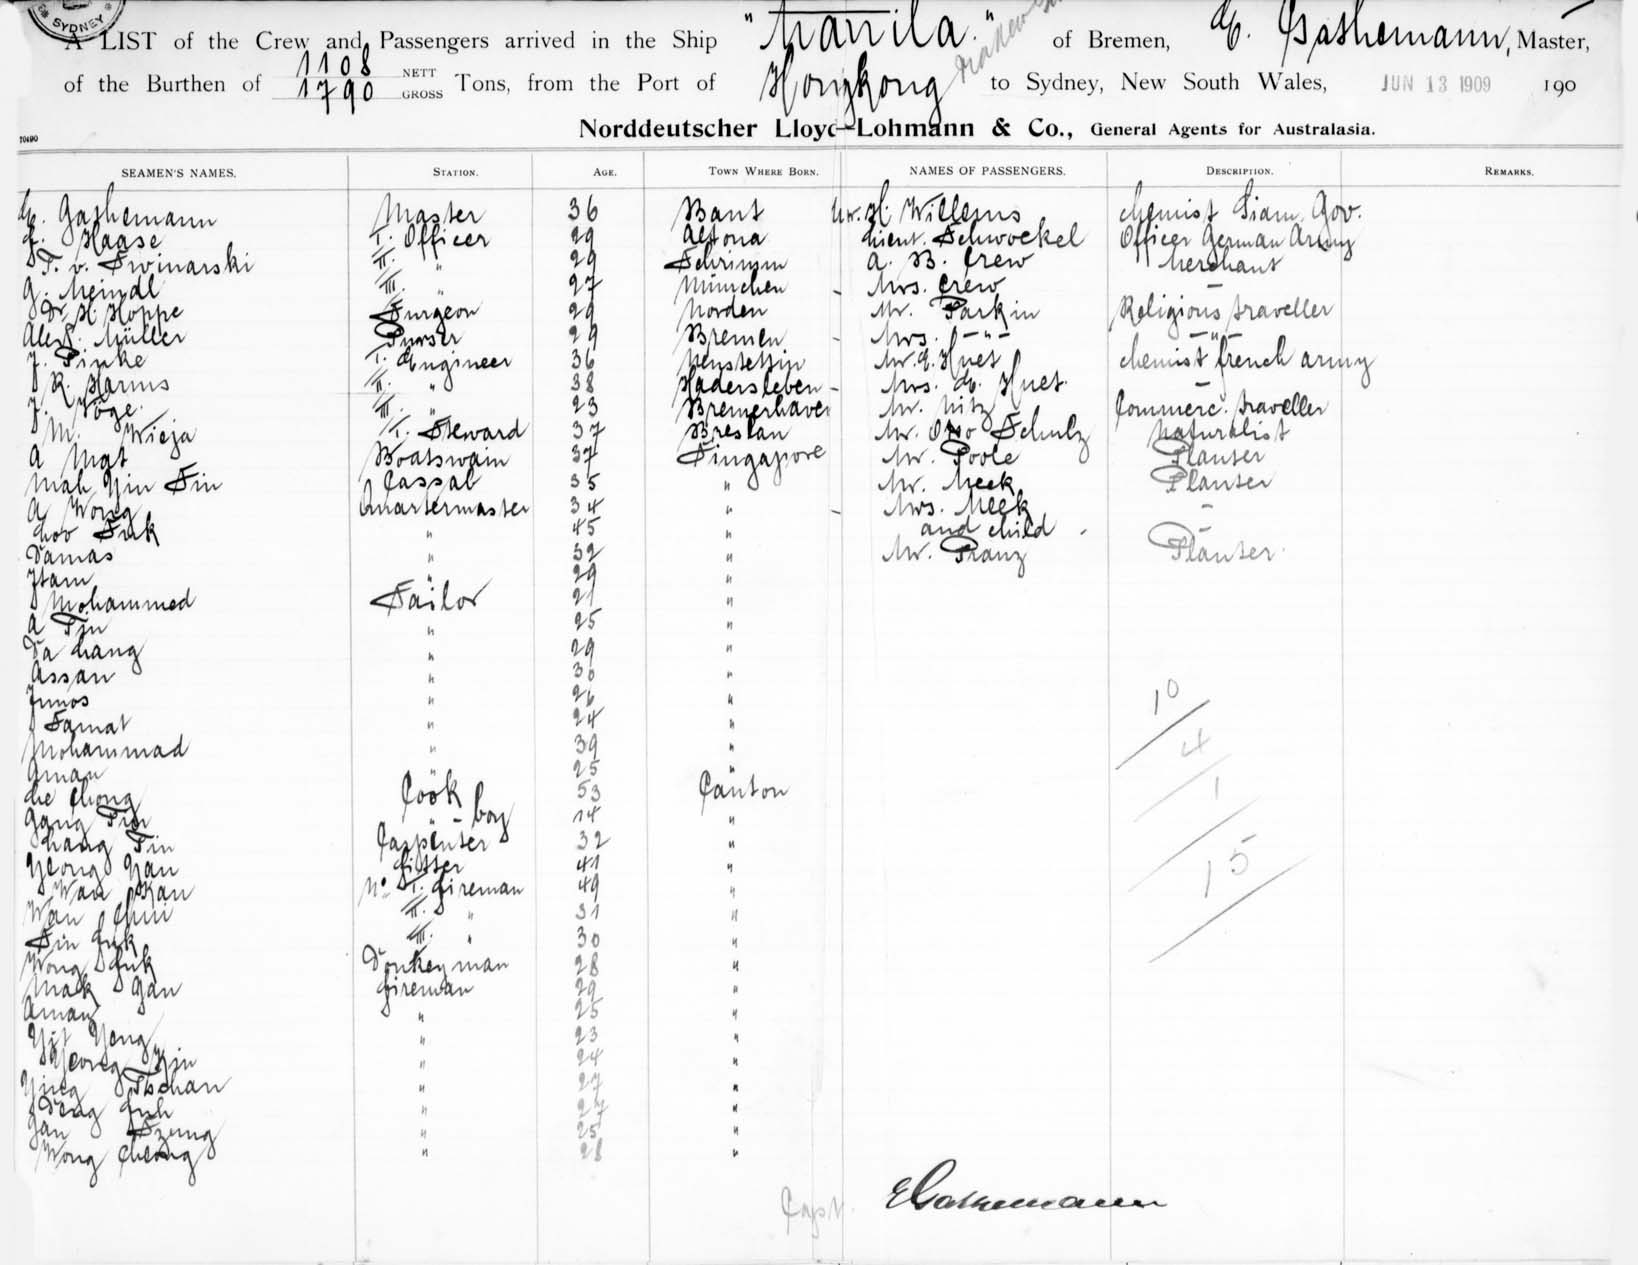 SYDNEY
A LIST of the Crew and Passengers arrived in the Ship "Manila." of Bremen, E. Gathemann, Master,
of the Burthen of 1108 NETT 1790 GROSS Tons, from the Port of Hongkong to Sydney, New South Wales, JUN 13 1909 190
Norddeutscher Lloyd—Lohmann & Co., General Agents for Australasia.
70490
SEAMEN'S NAMES. STATION. AGE. TOWN WHERE BORN. NAMES OF PASSENGERS. DESCRIPTION. REMARKS.
E. Gathemann Master 36 Bant Mr. H. Willems chemist Siam Gov.
Haase I. Officer 29 Altona Lieut. Schwockel Officer German Army
v. Swinarski II. " 29 Schrimm A. B. Crew Merchant
G. Meindl III. " 27 München - Mrs. Crew —
Dr. H. Hoppe Surgeon 29 Norden Mr. Parkin Religious traveller
Alex. Müller Purser 29 Bremen - Mrs. -"- -"-
J. Pinke I. Engineer 36 Neustettin Mr. E. Huet chemist french army
R. Harms II. " 38 Hadersleben - Mrs. E. Huet. —
J. Vöge. III. " 23 Bremerhaven Mr. Nitz Commerc. traveller
M. Wieja I. Steward 37 Breslau Mr. Otto Schulz Naturalist
A Mat Boatswain 37 Singapore Mr. Poole Planter
Mah Yin Sin Cassab 35 " Mr. Meek Planter
A Wong Quartermaster 34 " - Mrs. Meek —
Sak " 45 " and child - —
Damas " 32 " Mr. Pranz Planter.
Itam " 29 "
Mohammed Sailor 21 "
A Tin " 25 "
Da hang " 29 "
Assan " 30 "
Junos " 26 "
Samat " 24 "
Mohammad " 39 "
Aman " 25 "
Chong Cook 53 Canton
Gang " boy 14 "
Tin Carpenter 32 "
Yeong Yan fitter 41 "
Wau Kan No. I. fireman 49 "
Wan Chui II. " 31 "
Sin fuk III. " 30 "
Wong fuk Donkeyman 28 "
Mak Gan fireman 29 "
Aman " 25 "
Yit Yong " 23 "
Yeong Kin " 24 "
Ying Tschan " 27 "
" 27 "
Gan Szung " 25 "
Wong Cheong " 28 "
10
4
1
15
Capt. E Gathemann